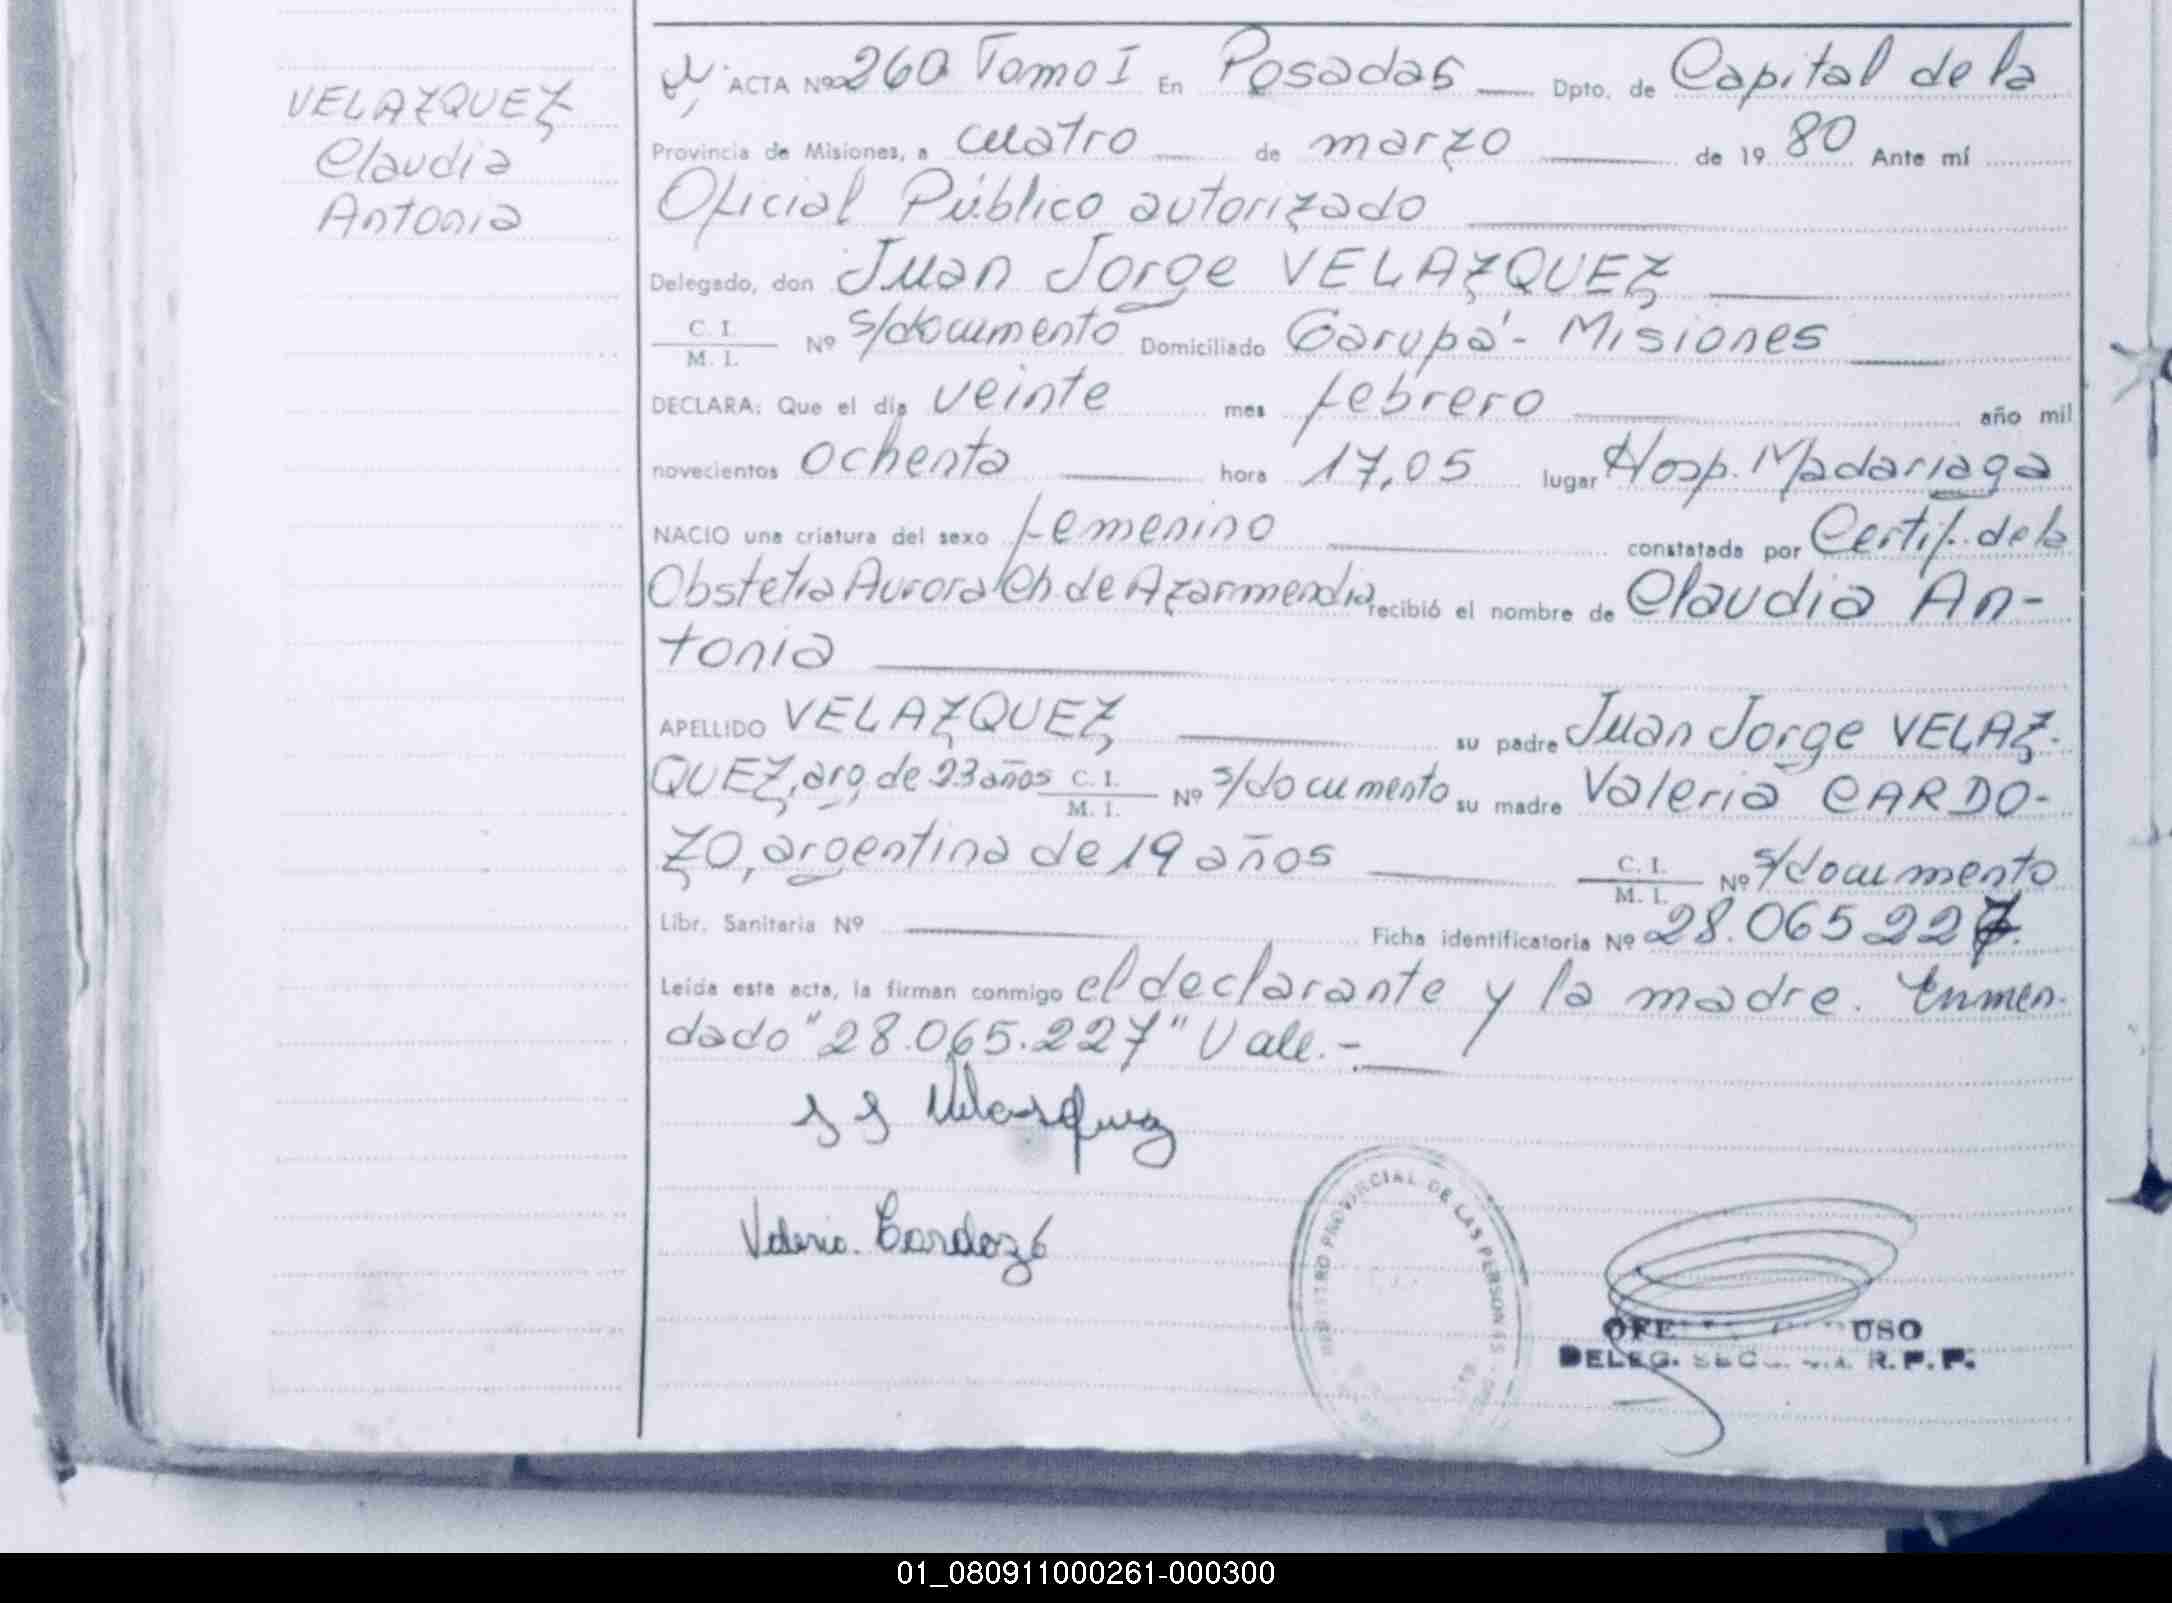 VELAZQUEZ
Claudia
Antonia
ACTA Nº 260 Tomo I En Posadas Dpto. de Capital de la
Provincia de Misiones, a cuatro de marzo de 1980 Ante mí
Oficial Público autorizado
Delegado, don Juan Jorge VELAZQUEZ
C. I.
M. I. Nº s/documento Domiciliado Garupá - Misiones
DECLARA: Que el día veinte mes febrero año mil
novecientos ochenta hora 17,05 lugar Hosp. Madariaga
NACIO una criatura del sexo femenino constatada por Certif. de la
Obstetra Aurora Ch. de Azarmendia recibió el nombre de Claudia An-
tonia
APELLIDO VELAZQUEZ su padre Juan Jorge VELAZ-
QUEZ, arg. de 23 años C. I. M. I. Nº s/documento su madre Valeria CARDO-
ZO, argentina de 19 años C. I. M. I. Nº s/documento
Libr. Sanitaria Nº Ficha identificatoria Nº 28.065 227.
Leída esta acta, la firman conmigo el declarante y la madre. Enmen-
dado "28.065.227" Vale.-
J J Velasquez
Valeria. Cardozo
REGISTRO PROVINCIAL DE LAS PERSONAS
USO
DELEG. R. P. P.
01_080911000261-000300